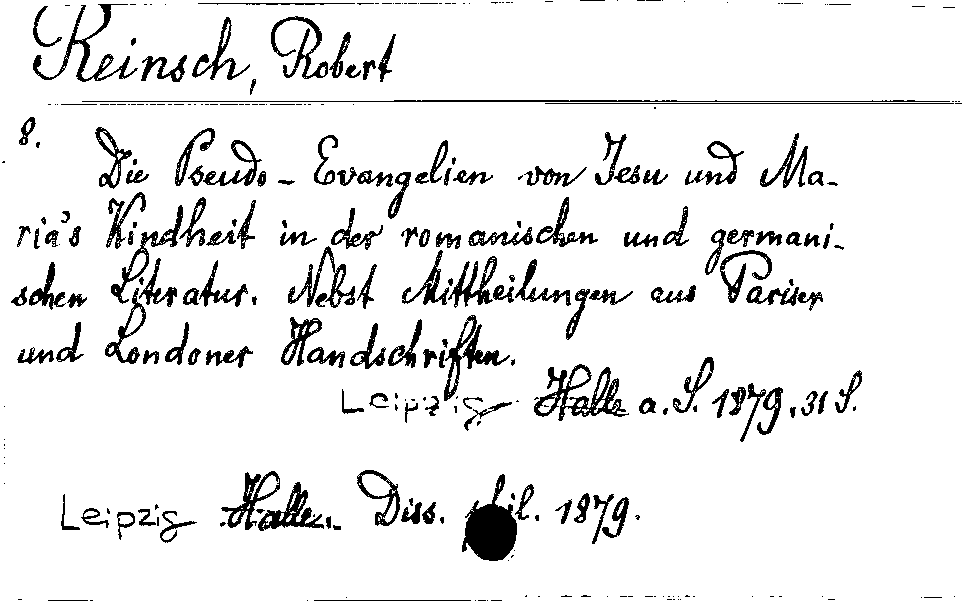 Reinsch, Robert
8.
Die Pseudo-Evangelien von Jesu und Ma-
ria's Kindheit in der romanischen und germani-
schen Literatur. Nebst Mittheilungen aus Pariser
und Londoner Handschriften.
Leipzig Halle a. S. 1879. 31 S.
Leipzig Halle. Diss. phil. 1879.